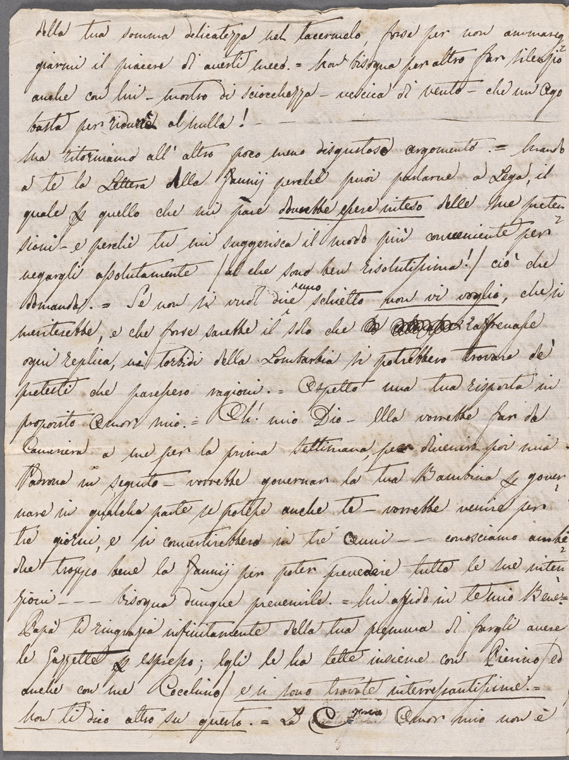 della tua somma delicatezza nel tacermelo forse per non amareg
giarmi il piacere di averti meco. = Non bisogna per altro far silenzio
anche con lui - mostro di sciocchezza - vescica di vento - che un Ego
basta per ridurre al nulla!
Ma ritorniamo all' altro poco meno disgustoso argomento. = Mando
a te la Lettera della Fannij perchè puoi parlarne a Lega, il
quale è quello che mi pare dovrebbe essere inteso delle sue preten
sioni - e perchè tu mi suggerisca il modo più conveniente per
negargli assolutamente (al che sono ben risolutissima!) ciò che
domanda. = Se non si vuol dire uno schietto non vi voglio, che si
meriterebbe, e che forse sarebbe il solo che raffrenasse
ogni replica, i torbidi della Lombardia si potrebbero trovare de'
pretesti che paressero ragioni. = Aspetto una tua risposta in
proposito Amor mio. = Oh! mio Dio - ella vorrebbe far da
Cameriera a me per la prima settimana per divenire poi mia
Padrona in seguito - vorrebbe governar la tua Bambina per gover
nare in qualche parte se potesse anche te - vorrebbe venire per
tre giorni, e si convertirebbero in tre anni - - conosciamo ambi
due troppo bene la Fannij per poter prevedere tutte le sue inten
zioni - - - bisogna dunque prevenirle. = Mi affido in te mio Bene =
Papà ti ringrazia infinitamente della tua premura di fargli avere
le Gazzette espresso; Egli le ha lette insieme con Pierino, ed
anche con me Cocchino, e si sono trovate interessantissime. =
Non ti dico altro su questo. = La Amor mio non è